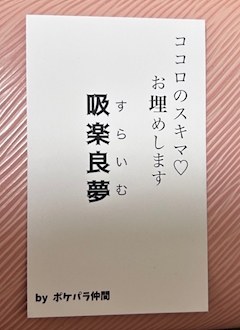 ココロのスキマ♡
お埋めします
すらいむ
吸楽良夢
by ポケパラ仲間